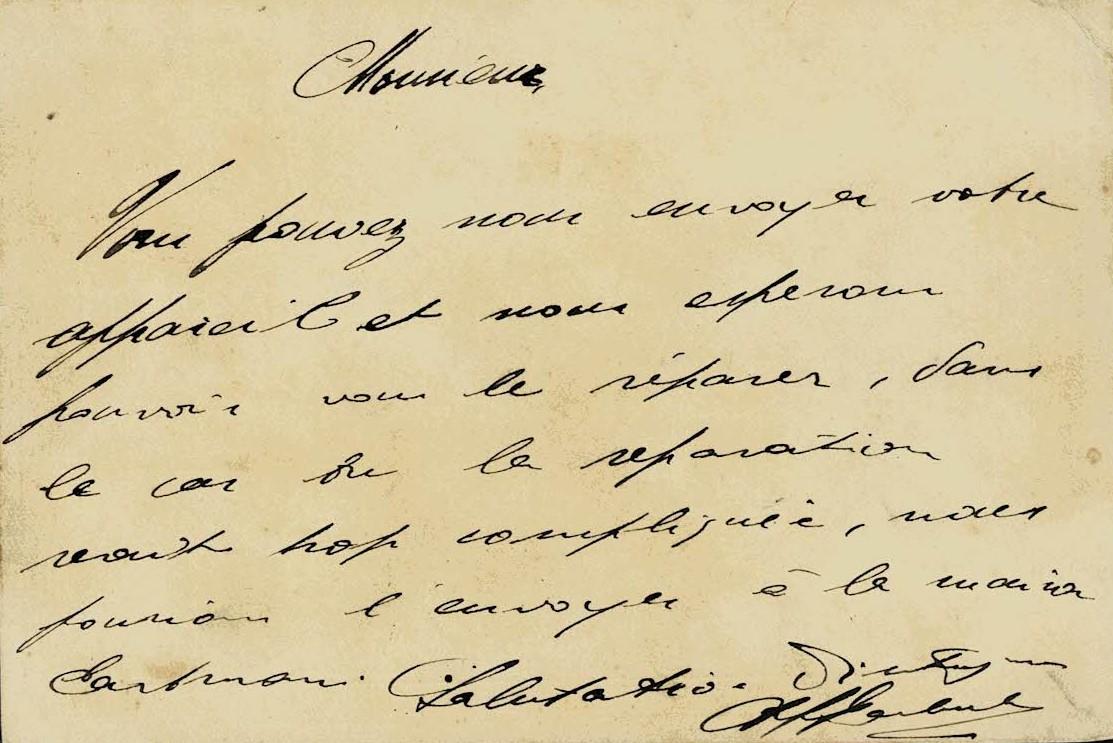 Monsieur,
Vous pouvez nous envoyer votre
appareil et nous esperons
pouvoir vous le réparer, dans
le cas où la reparation
serait trop compliquée, nous
pourrions l'envoyer à la maison
Eastman. Salutations